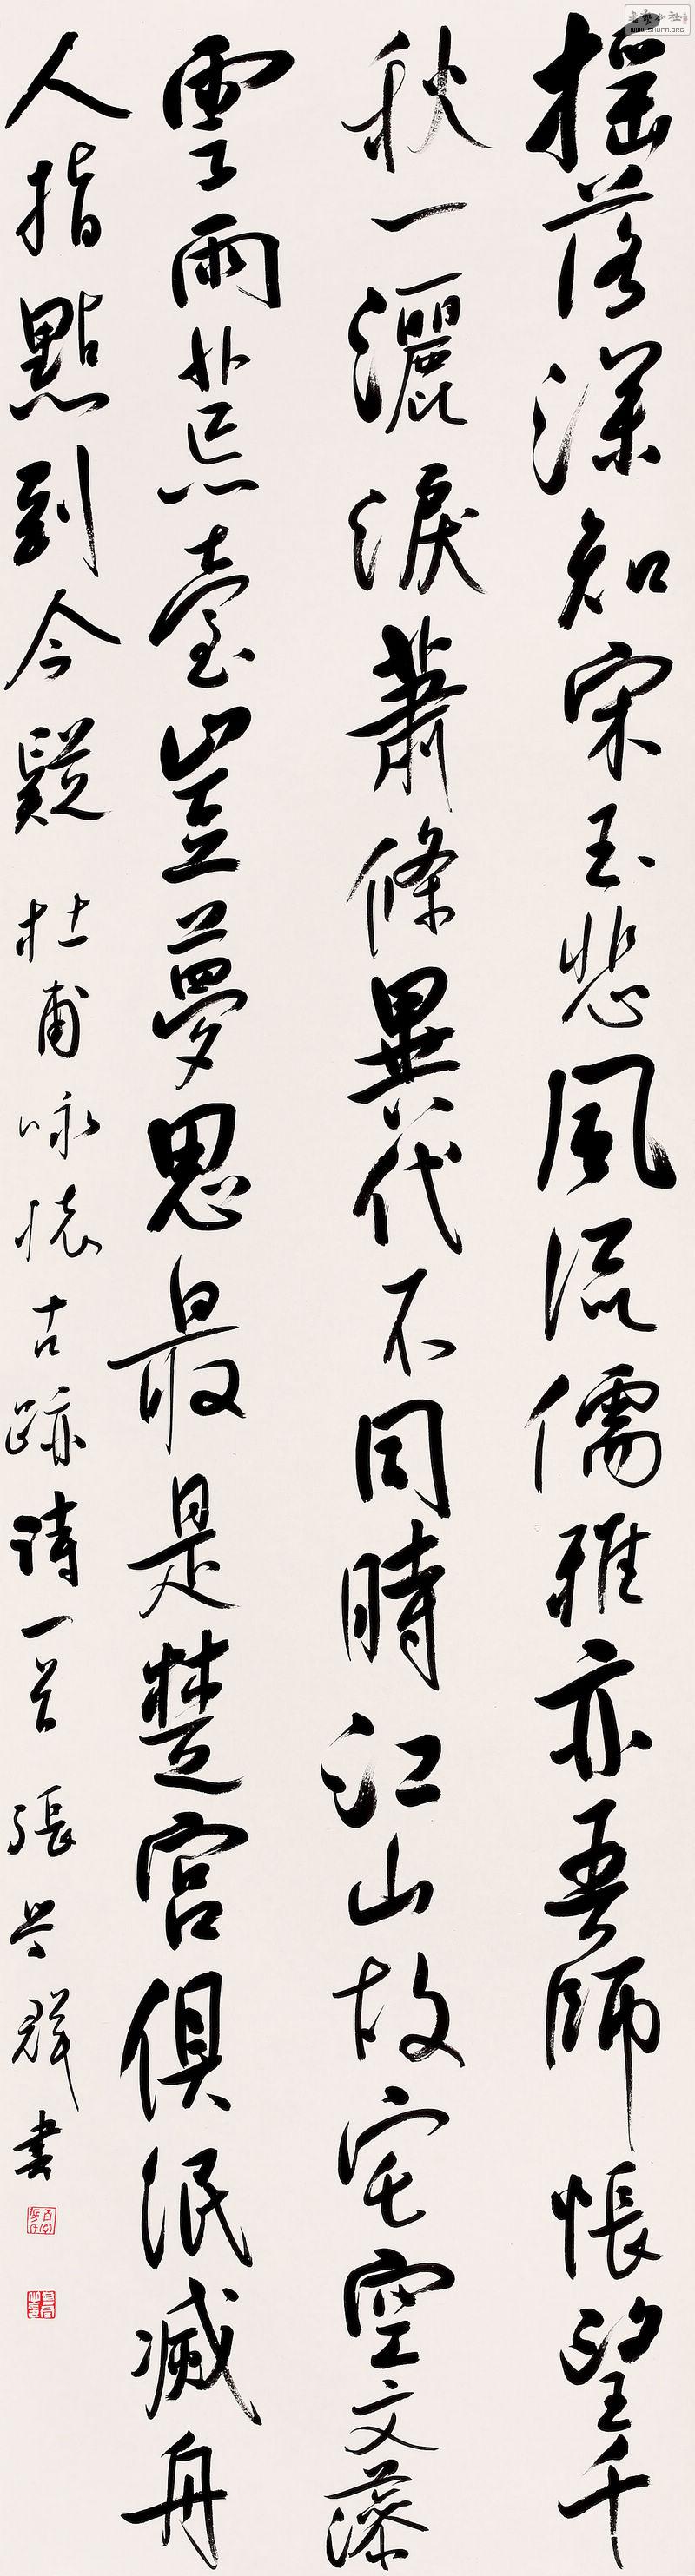 搖落深知宋玉悲風流儒雅亦吾師悵望千
秋一灑淚蕭條異代不同時江山故宅空文藻
雲雨荒臺豈夢思最是楚宮俱泯滅舟
人指點到今疑 杜甫咏懷古跡詩一首 張兴群書
WWW.SHUFA.ORG